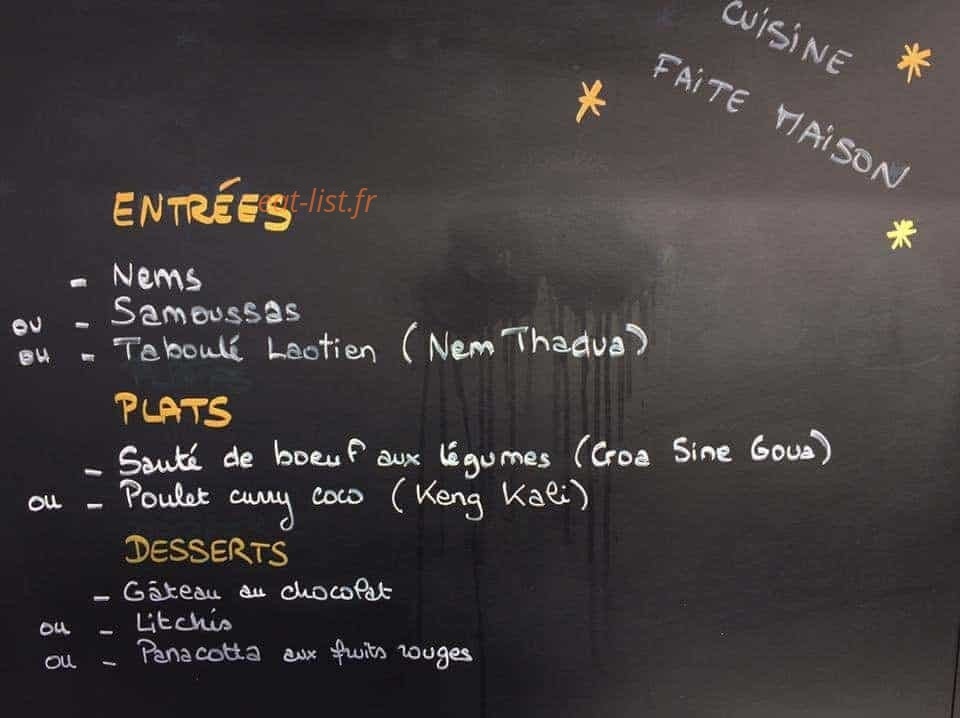 CUISINE
FAITE MAISON
ENTRÉES
eat-list.fr
- Nems
ou - Samoussas
ou - Taboulé Laotien (Nem Thadua)
PLATS
- Sauté de boeuf aux légumes (Croa Sine Goua)
ou - Poulet curry coco (Keng Kali)
DESSERTS
- Gâteau au chocolat
ou - Litchis
ou - Panacotta aux fruits rouges